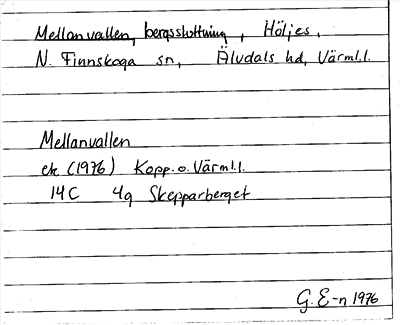 Mellanvallen, bergssluttning, Höljes,
N. Finnskoga sn, Älvdals hd, Värml.l.
Mellanvallen
ek (1976) Kopp. o. Värml.l.
14C 4g Skepparberget
G. E-n 1976